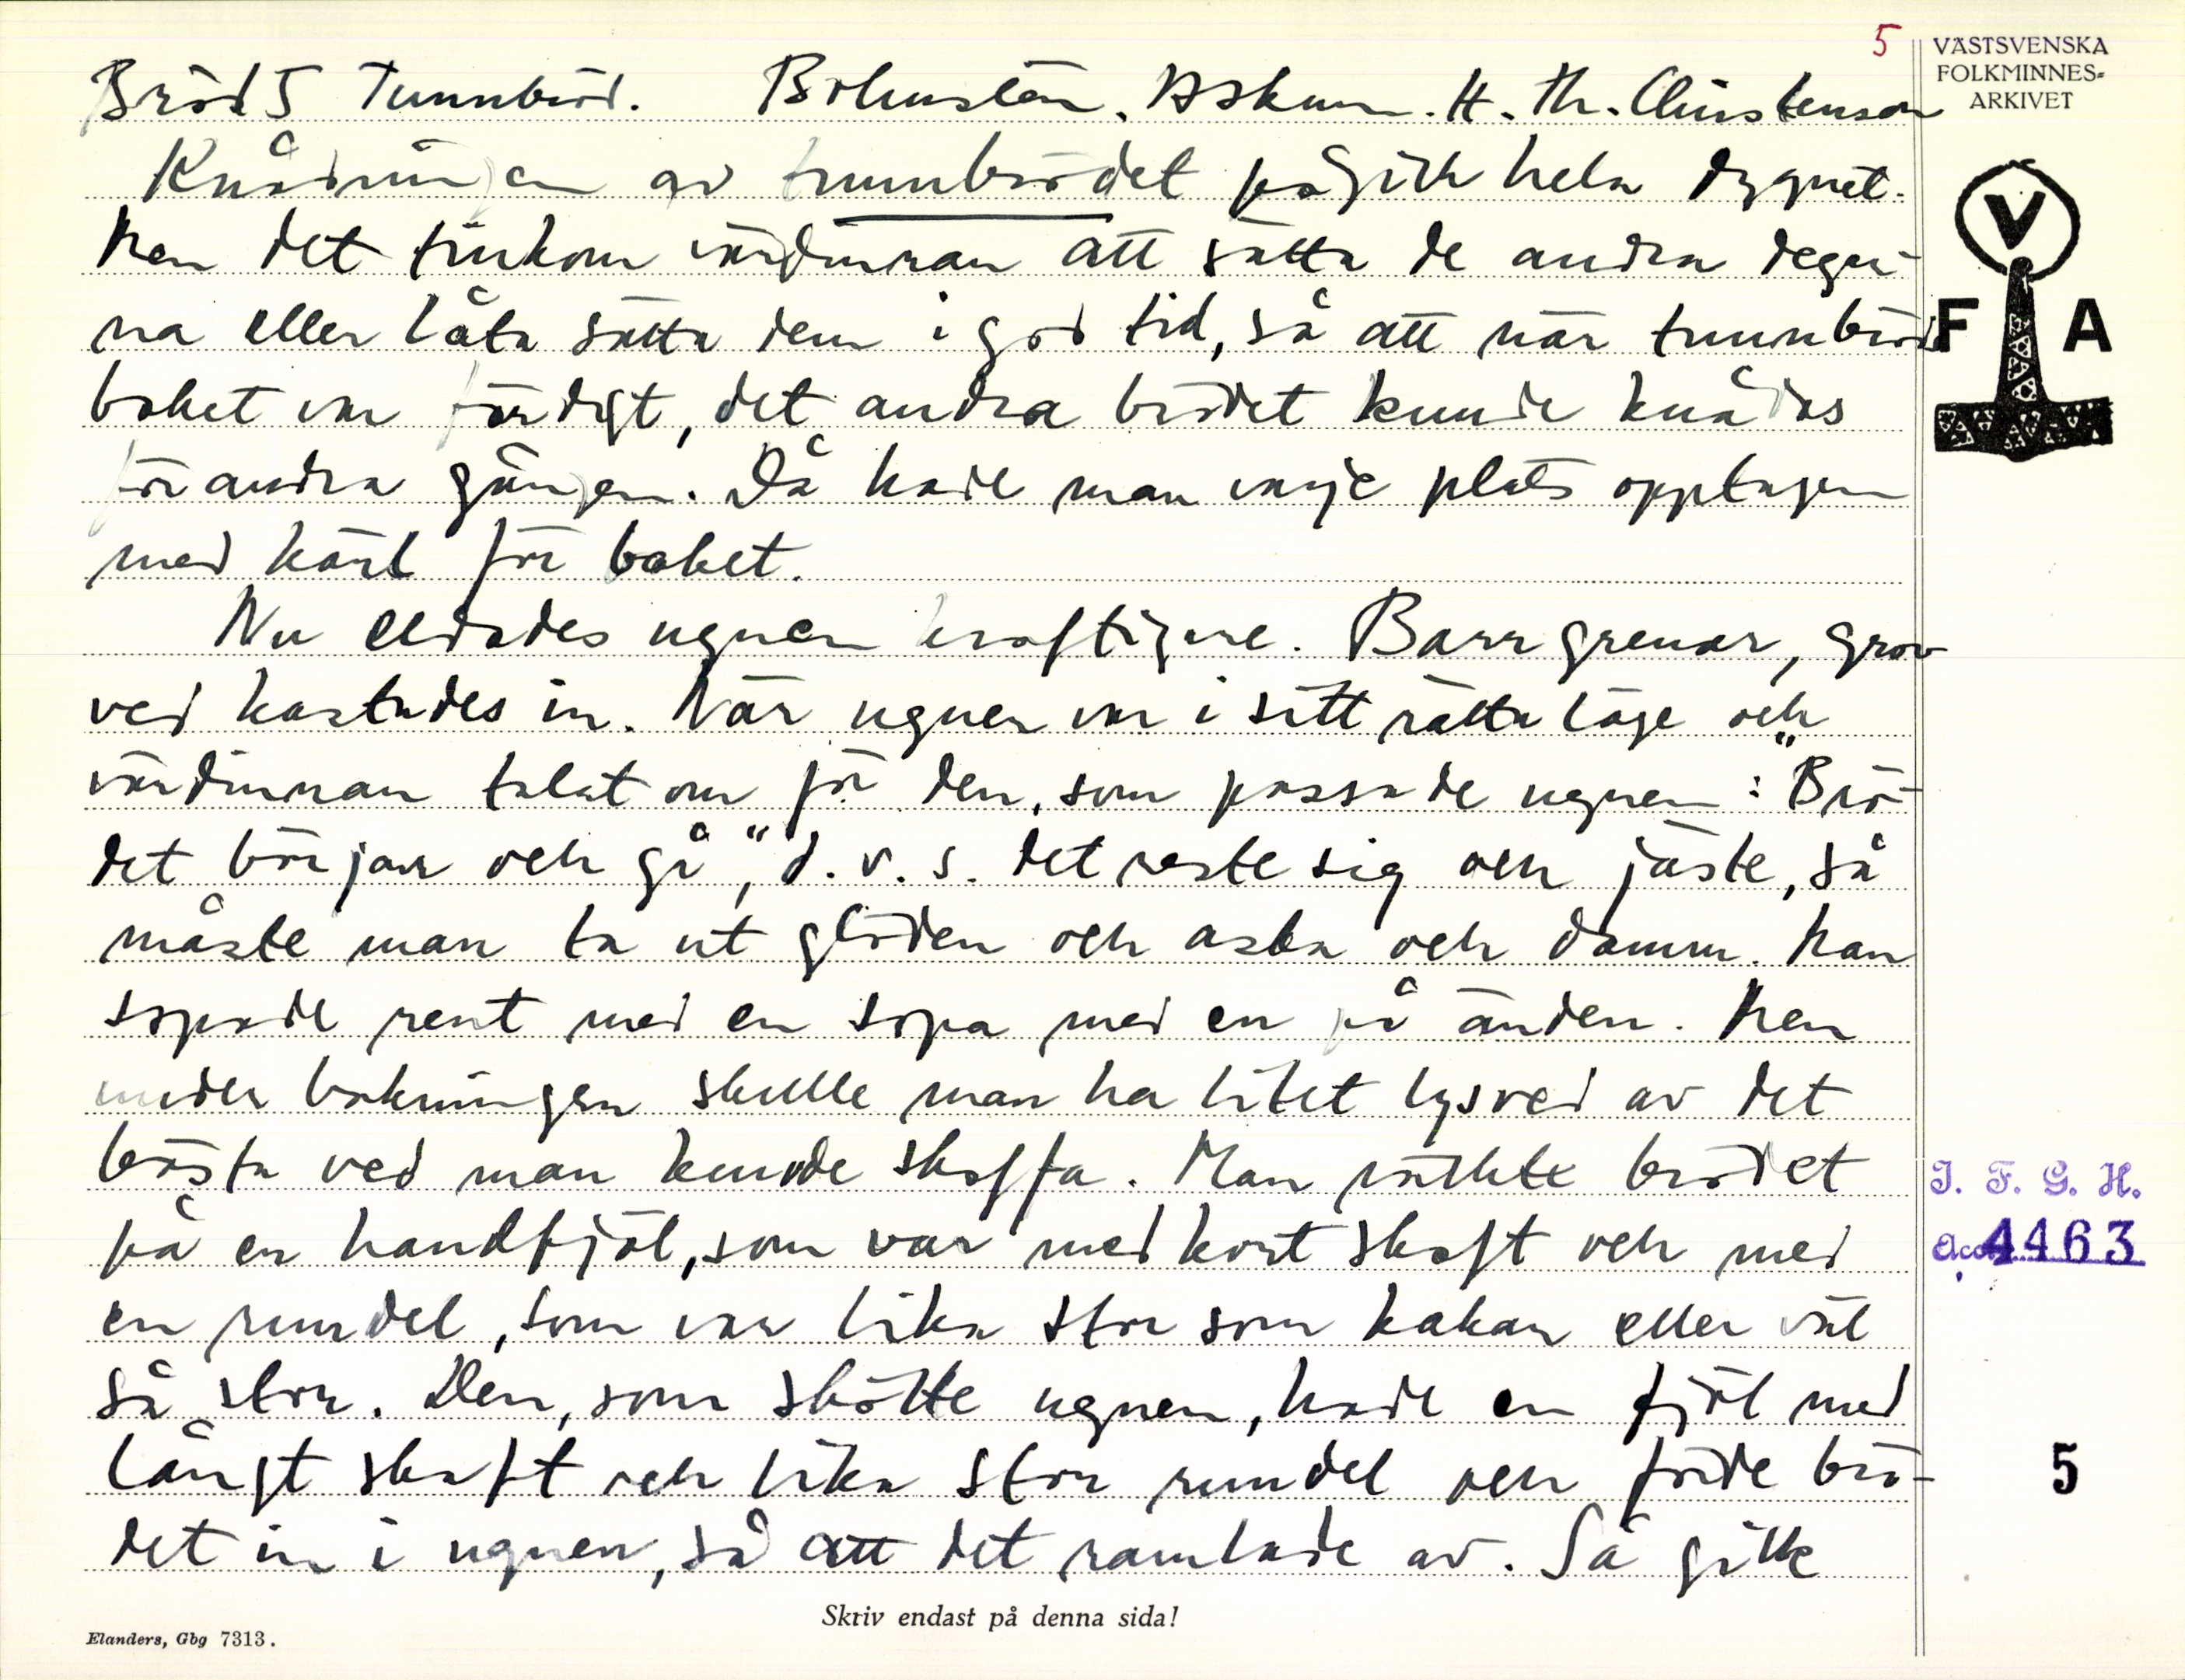 5
VÄSTSVENSKA
FOLKMINNES-
ARKIVET
Bröd 5 Tunnbröd. Bohuslän. Askum. H. Th. Christenson
Knådningen av tunnbrödet pågick hela dygnet.
Men det tillkom värdinnan att sätta de andra degar-
na eller låta sätta dem i god tid, så att när tunnbröds
baket var färdigt, det andra brödet kunde knådas
för andra gången. Då hade man varje plats opptagen
med kärl för baket.
Nu eldades ugnen kraftigare. Barrgrenar, grov
ved kastades in. När ugnen var i sitt rätta läge och
värdinnan talat om för den, som passade ugnen: "Brö-
det börjar och gå", d.v.s. det reste sig och jäste, så
måste man ta ut glöden och aska och damm. Man
sopade rent med en sopa med en på änden. Men
under bakningen skulle man ha litet lysved av det
bästa ved man kunde skaffa. Man räckte brödet
på en handfjöl, som var med kort skaft och med
en rundel, som var lika stor som kakan eller väl
så stor. Den, som skötte ugnen, hade en fjöl med
långt skaft och lika stor rundel och förde brö-
det in i ugnen, så att det ramlade av. Så gick
V
F A
I. F. G. H.
Acc. 4463
5
Skriv endast på denna sida!
Elanders, Gbg 7313.